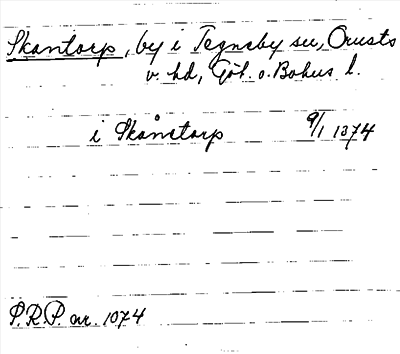 Skantorp, by i Tegneby sn, Orusts
v. hd, Göt. o. Bohus l.
i Skånetorp 9/1 1374
P.R.P. nr. 1074